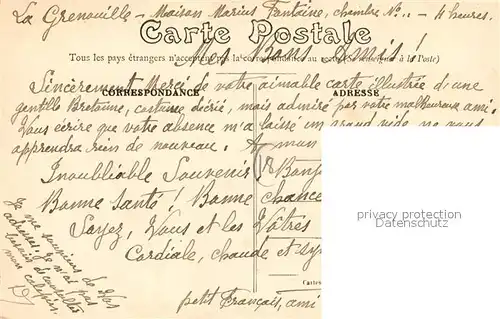 La Grenouille - Maison Marius Fantaine, chambre No... - 4 heures.
Carte Postale
Mes Bons Amis!
Tous les pays étrangers n'acceptent pas la correspondance au recto (Se renseigner à la Poste)
Sincèrement Merci de votre aimable carte illustrée d'une
CORRESPONDANCE
ADRESSE
gentille Bretonne, costume décrié, mais admiré par votre malheureux ami.
Vous écrire que votre absence m'a laissé un grand vide, ne vous
apprendra rien de nouveau.
Inoubliable Souvenir!
Bonne Santé! Bonne chance
Soyez, Vous et les Vôtres
Cordiale, chaude et
petit Français, ami
Cartes
Je me souviens de Vos
adresses. Je n'ai pas
besoin de consulter
mon calepin.
privacy protection
Datenschutz